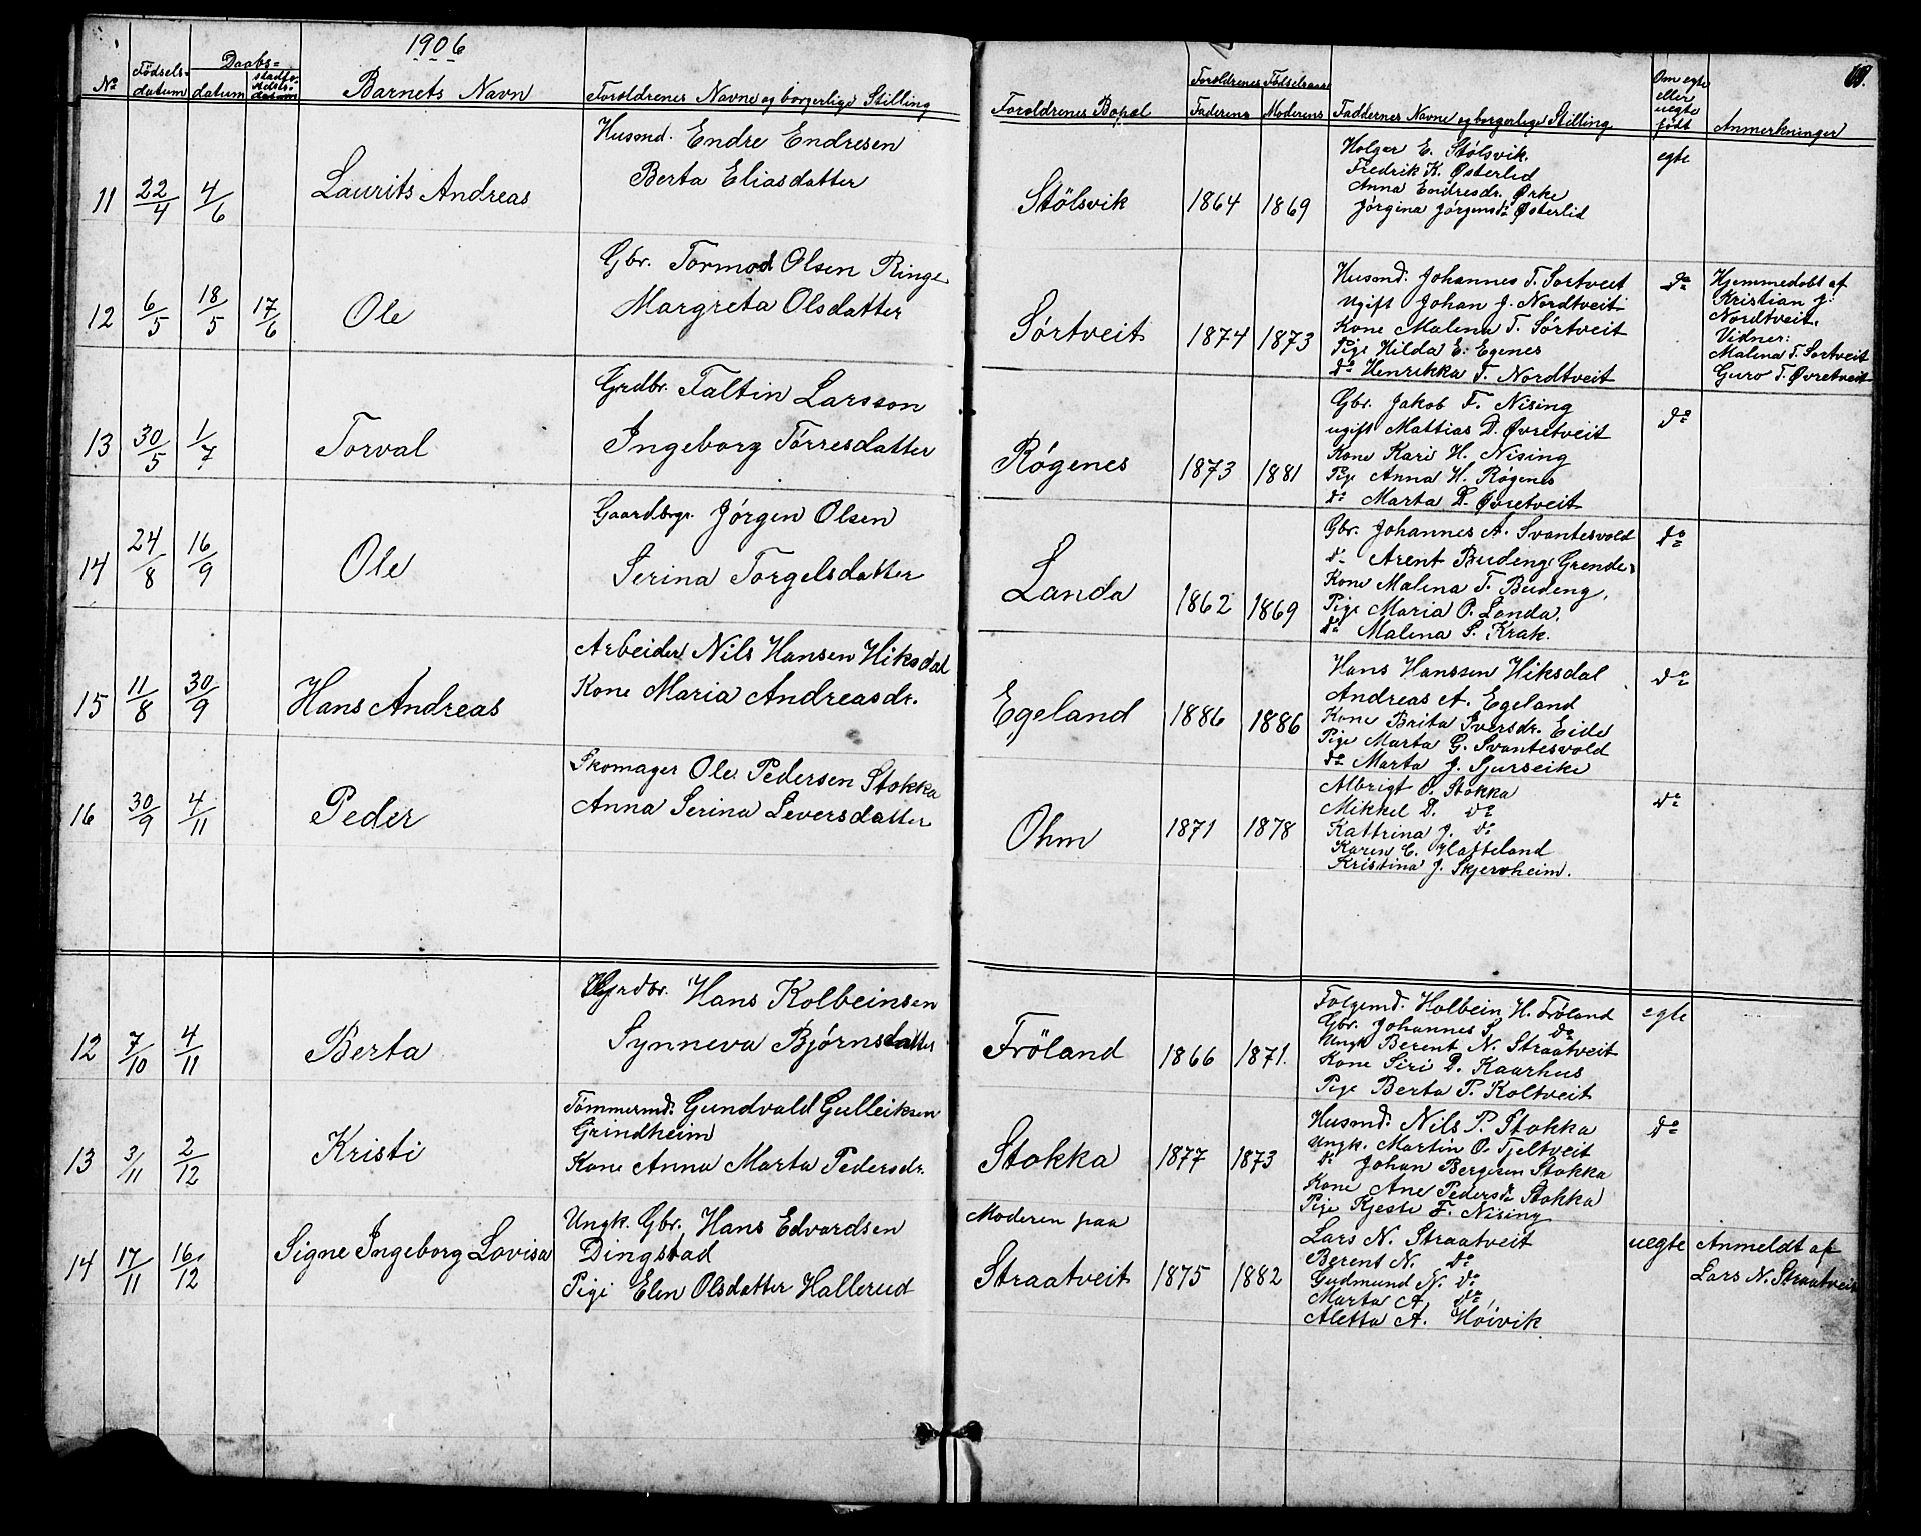 1906
69.
No
Fødsels-
datum
Daabs-
datum
stadfæ-
stelses-
datum
Barnets Navn
Foroldrenes Navne og borgerlige Stilling
Foroldrenes Bopæl
Foroldrenes Fødselsaar
Faderens
Moderens
Faddernes Navne og borgerlige Stilling
Om egte
eller
uegte
født
Anmerkninger
11 22/4 4/6
Laurits Andreas
Husmd. Endre Endresen
Berta Eliasdatter
Stölsvik 1864 1869
Holger E. Stølsvik.
Fredrik K. Østerlid
Anna Endresdr. Ørke
Jørgina Jørgensdr Østerlid
egte
12 6/5 18/5 17/6
Ole
Gbr. Tormod Olsen Ringe
Margreta Olsdatter
Sørtveit 1874 1873
Husmd. Johannes T. Sortveit
Ugift Johan J. Nordtveit
Kone Malena T. Sørtveit
Pige Hilda E. Egenes
do Henrikka T. Nordtveit
do
Hjemmedøbt af
Kristian J.
Nordtveit.
Vidner:
Malena T. Sortveit
Guro T. Øvretveit
13 30/5 1/7
Torval
Grdbr. Faltin Larsson
Ingeborg Tørresdatter
Røgenes 1873 1881
Gbr. Jakob F. Nising
ugift Mattias D. Øvretveit
Kone Kari H. Nising
Pige Anna H. Røgenes
do Marta D. Øvretveit
do
14 24/8 16/9
Ole
Gaardbrgr. Jørgen Olsen
Serina Torgelsdatter
Landa 1862 1869
Gbr. Johannes A. Svantesvold
do Arent Budeng, Grende
Kone Malena T. Budeng,
Pige Maria O. Landa,
do Malena S. Krak.
do
15 11/8 30/9
Hans Andreas
Arbeider Nils Hansen Hiksdal
Kone Maria Andreasdr.
Egeland 1886 1886
Hans Hanssen Hiksdal
Andreas A. Egeland
Kone Brita Iversdr. Eide
Pige Marta G. Svantesvold
do Marta J. Sjurseike
do
16 30/9 4/11
Peder
Skomager Ole Pedersen Stokka
Anna Serina Seversdatter
Ohm 1871 1878
Albrigt O. Stokka
Mikkel D. do
Kattrina J. do
Karen C. Hafteland
Kristina J. Skjersheim.
do
12 7/10 4/11
Berta
Grdbr. Hans Kolbeinsen
Synneva Bjørnsdatter
Fröland 1866 1871.
Folgemd. Holbein H. Fröland
Gbr. Johannes S. do
Ungk Berent N. Straatveit
Kone Siri D. Kaarhus
Pige Berta P. Koltveit
egte
13 3/11 2/12
Kristi
Tömmermd. Gundvald Gulleiksen
Grindheim
Kone Anna Marta Pedersdr.
Stokka 1877 1873
Husmd. Nils P. Stokka
Ungk. Martin O. Tjeltveit
do Johan Bergesen Stokka
Kone Ane Pedersdr Stokka
Pige Kjesti F. Nising
do
14 17/11 16/12
Signe Ingeborg Lovisa
Ungk. Gbr. Hans Edvardsen
Dingstad
Pige Elen Olsdatter Hallerud
Moderen paa
Straatveit 1875 1882
Lars N. Straatveit
Berent N. do
Gudmund N. do
Marta A. do
Aletta A. Høivik
uegte
Anmeldt af
Lars N. Straatveit